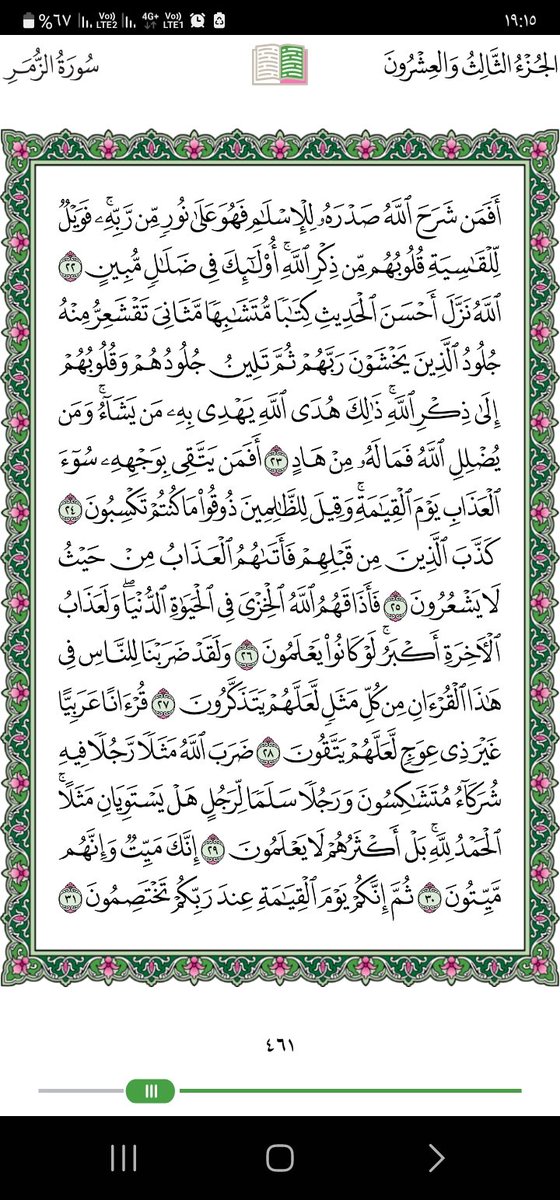 ١٩:١٥ Vo)) LTE1 4G+ Vo)) LTE2 %٦٧
الجُزْءُ الثَّالِثُ وَالعِشْرُونَ سُورَةُ الزُّمَرِ
أَفَمَن شَرَحَ ٱللَّهُ صَدْرَهُۥ لِلْإِسْلَٰمِ فَهُوَ عَلَىٰ نُورٍ مِّن رَّبِّهِۦۚ فَوَيْلٌ
لِّلْقَٰسِيَةِ قُلُوبُهُم مِّن ذِكْرِ ٱللَّهِۚ أُو۟لَٰٓئِكَ فِى ضَلَٰلٍ مُّبِينٍ ٢٢
ٱللَّهُ نَزَّلَ أَحْسَنَ ٱلْحَدِيثِ كِتَٰبًا مُّتَشَٰبِهًا مَّثَانِىَ تَقْشَعِرُّ مِنْهُ
جُلُودُ ٱلَّذِينَ يَخْشَوْنَ رَبَّهُمْ ثُمَّ تَلِينُ جُلُودُهُمْ وَقُلُوبُهُمْ
إِلَىٰ ذِكْرِ ٱللَّهِۚ ذَٰلِكَ هُدَى ٱللَّهِ يَهْدِى بِهِۦ مَن يَشَآءُۚ وَمَن
يُضْلِلِ ٱللَّهُ فَمَا لَهُۥ مِنْ هَادٍ ٢٣ أَفَمَن يَتَّقِى بِوَجْهِهِۦ سُوٓءَ
ٱلْعَذَابِ يَوْمَ ٱلْقِيَٰمَةِۚ وَقِيلَ لِلظَّٰلِمِينَ ذُوقُوا۟ مَا كُنتُمْ تَكْسِبُونَ ٢٤
كَذَّبَ ٱلَّذِينَ مِن قَبْلِهِمْ فَأَتَىٰهُمُ ٱلْعَذَابُ مِنْ حَيْثُ
لَا يَشْعُرُونَ ٢٥ فَأَذَاقَهُمُ ٱللَّهُ ٱلْخِزْىَ فِى ٱلْحَيَوٰةِ ٱلدُّنْيَاۖ وَلَعَذَابُ
ٱلْأَخِرَةِ أَكْبَرُۚ لَوْ كَانُوا۟ يَعْلَمُونَ ٢٦ وَلَقَدْ ضَرَبْنَا لِلنَّاسِ فِى
هَٰذَا ٱلْقُرْءَانِ مِن كُلِّ مَثَلٍ لَّعَلَّهُمْ يَتَذَكَّرُونَ ٢٧ قُرْءَانًا عَرَبِيًّا
غَيْرَ ذِى عِوَجٍ لَّعَلَّهُمْ يَتَّقُونَ ٢٨ ضَرَبَ ٱللَّهُ مَثَلًا رَّجُلًا فِيهِ
شُرَكَآءُ مُتَشَٰكِسُونَ وَرَجُلًا سَلَمًا لِّرَجُلٍ هَلْ يَسْتَوِيَانِ مَثَلًاۚ
ٱلْحَمْدُ لِلَّهِۚ بَلْ أَكْثَرُهُمْ لَا يَعْلَمُونَ ٢٩ إِنَّكَ مَيِّتٌ وَإِنَّهُم
مَّيِّتُونَ ٣٠ ثُمَّ إِنَّكُمْ يَوْمَ ٱلْقِيَٰمَةِ عِندَ رَبِّكُمْ تَخْتَصِمُونَ ٣١
٤٦١